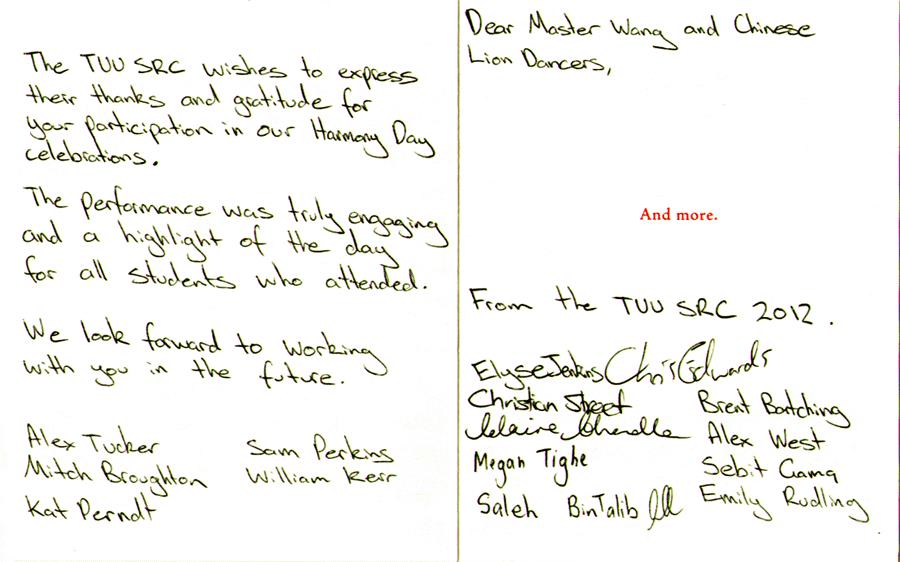 The TUU SRC wishes to express
their thanks and gratitude for
your participation in our Harmony Day
celebrations.
The performance was truly engaging
and a highlight of the day
for all students who attended.
We look forward to working
with you in the future.
Alex Tucker
Mitch Broughton
Kat Perndt
Sam Perkins
William Kerr
Dear Master Wang and Chinese
Lion Dancers,
And more.
From the TUU SRC 2012.
Elyse Jenkins Chris Edwards
Christian Street
Claire
Megan Tighe
Saleh BinTalib
Brent
Alex West
Sebit
Emily Rudling